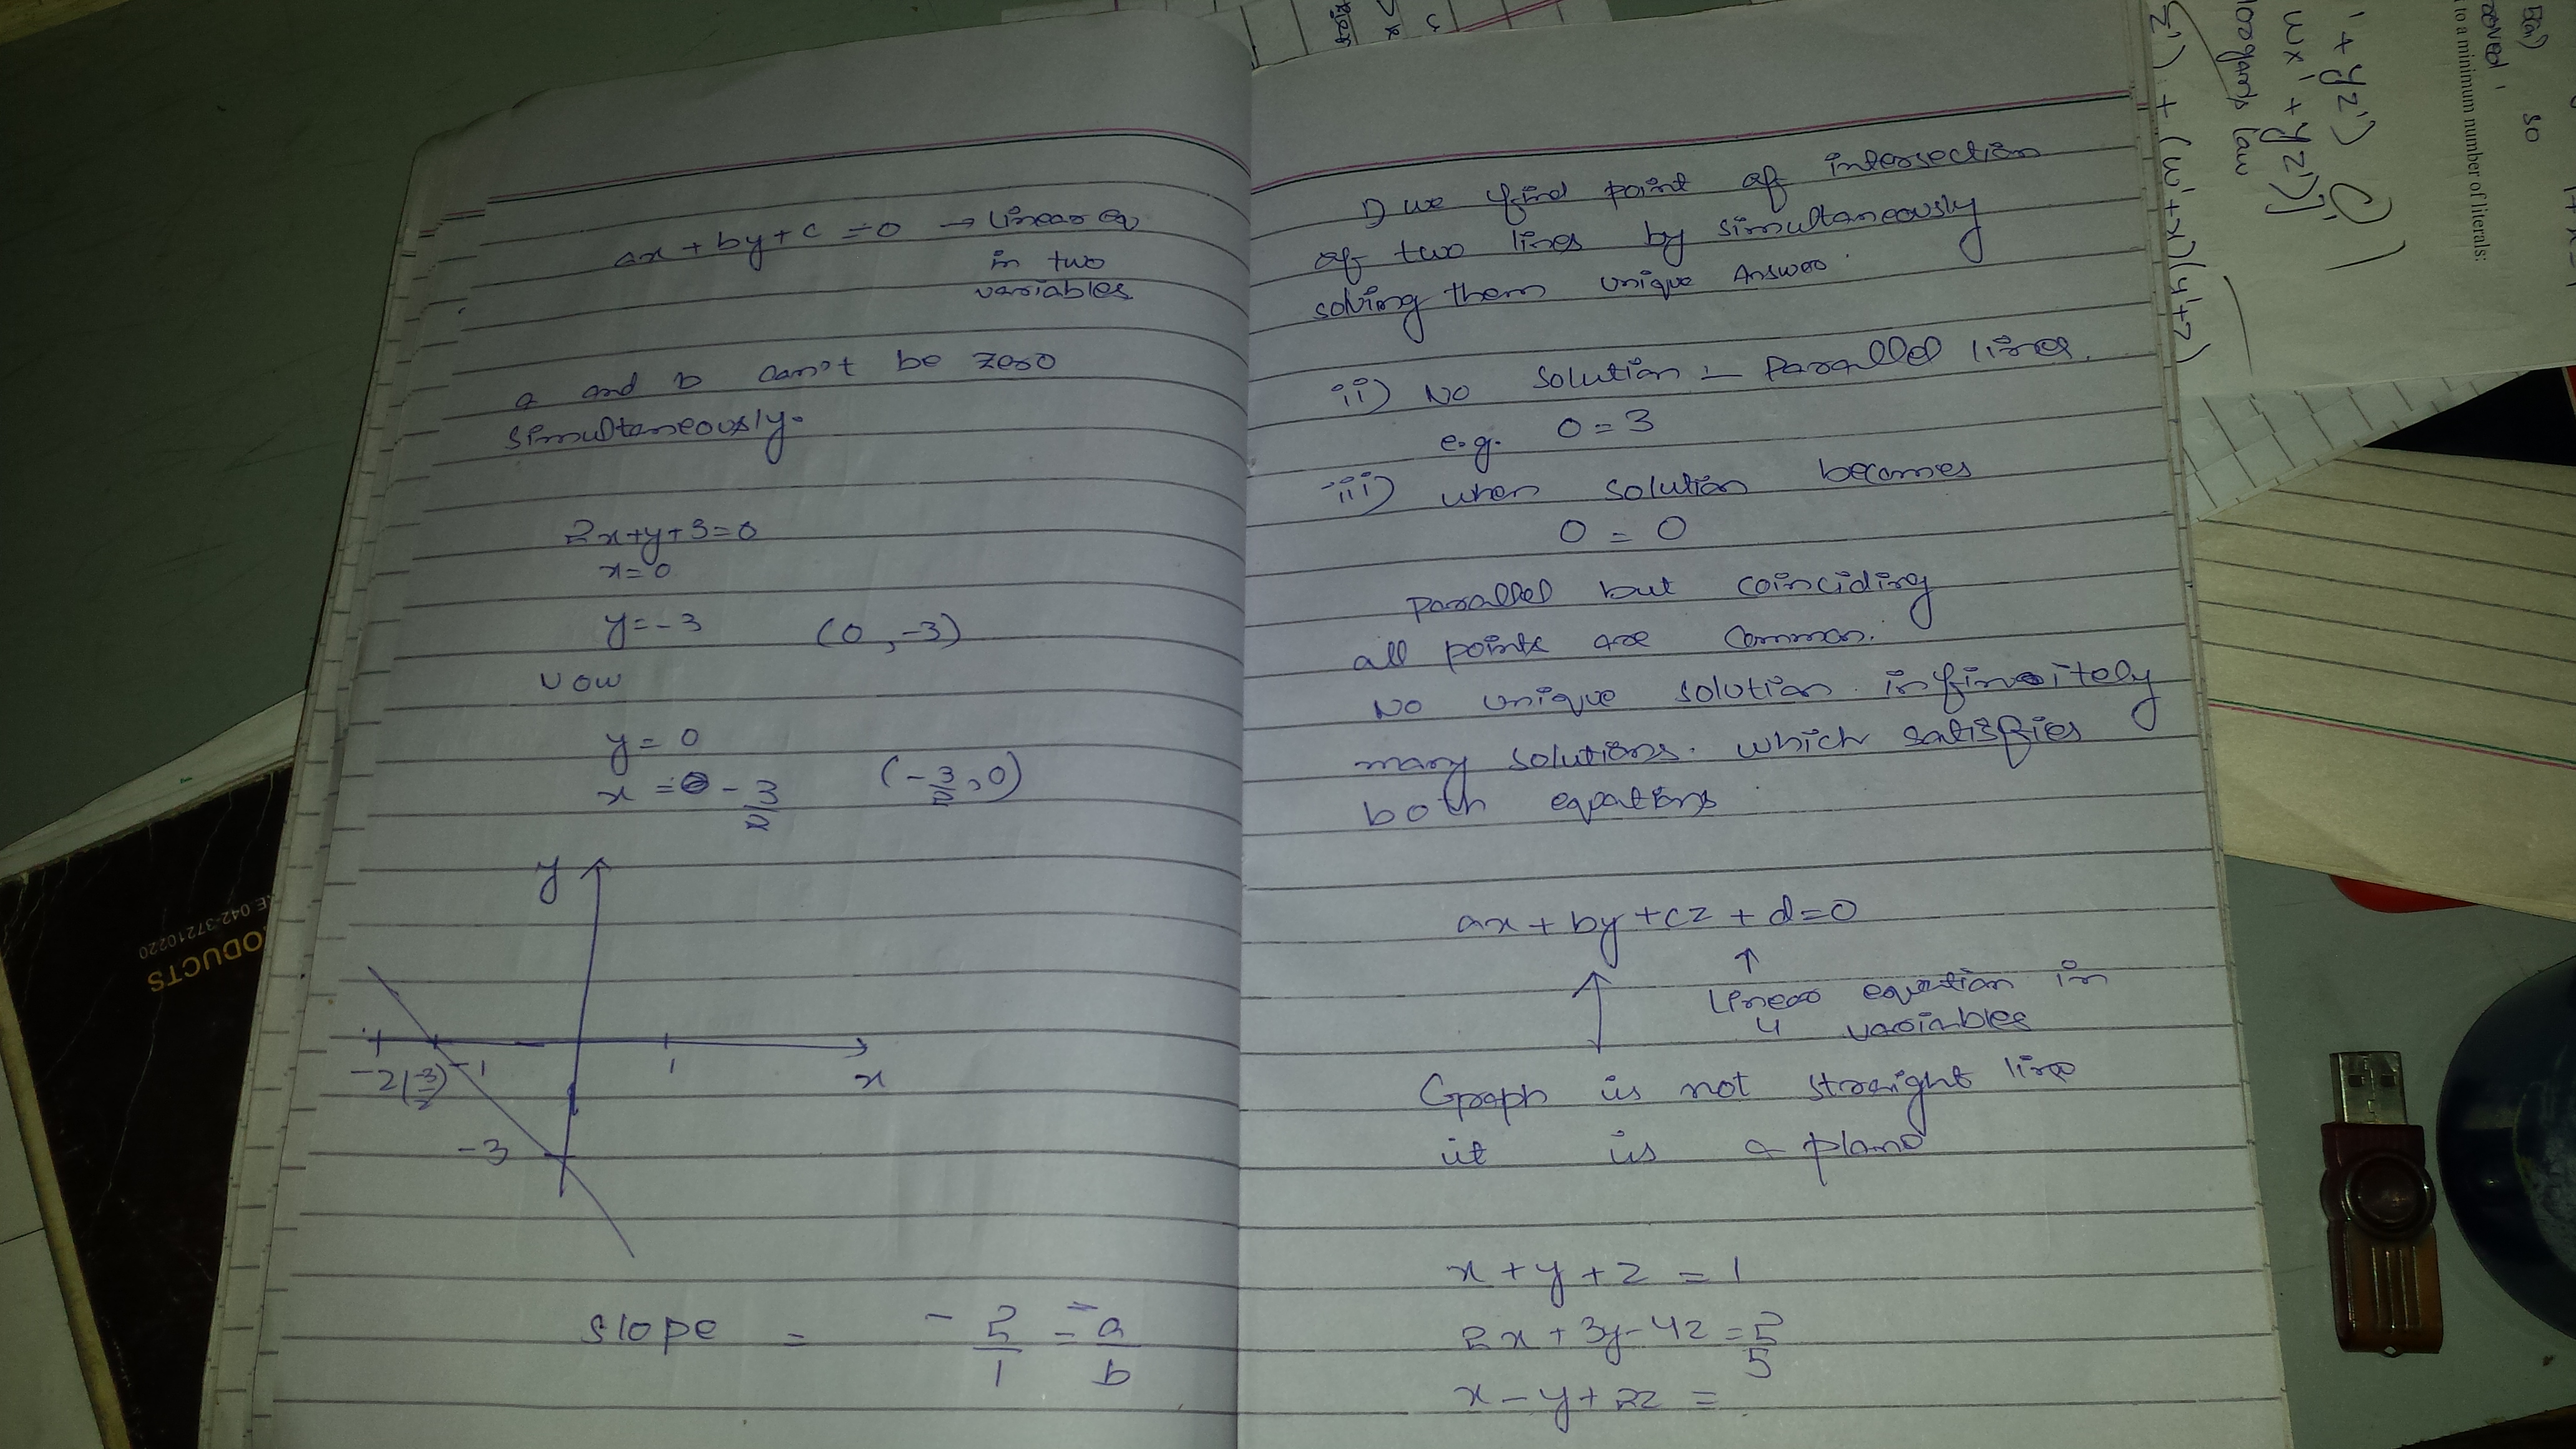 ax + by + c = 0 → Linear eq
in two
variables
a and b can't be zero
simultaneously.
2x+y+3=0
x=0
y=-3 (0, -3)
Now
y = 0
x = - 3/2 (-3/2, 0)
y
-2 (-3/2) -1 1 x
-3
slope = - 2/1 = -a/b
I) we find point of intersection
of two lines by simultaneously
solving them unique Answer.
ii) No solution :- Parallel lines.
e.g. 0 = 3
iii) when solution becomes
0 = 0
parallel but coinciding
all points are common.
No unique solution. infinitely
many solutions. which satisfies
both equations
ax + by + cz + d = 0
↑ ↑
Linear equation in
4 variables
Graph is not straight line
it is a plane
x + y + z = 1
2x + 3y - 4z =
5
x - y + 2z =
PRODUCTS
042-37210220
to a minimum number of literals:
so
law
' + yz')
wx' + yz')]'
+ (w'+x)(y'+z)